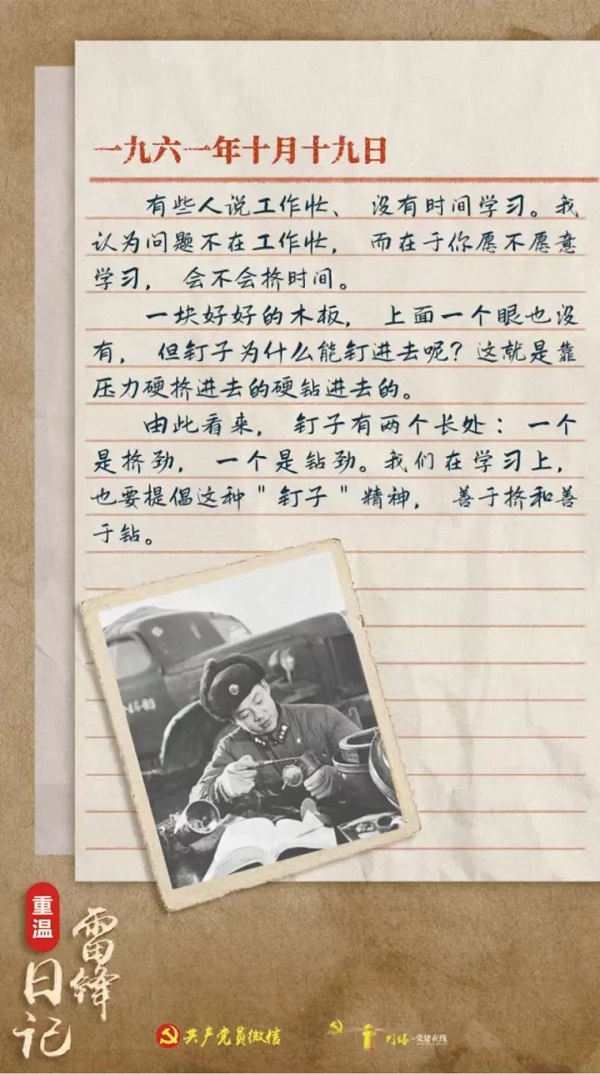 一九六一年十月十九日
有些人说工作忙、 没有时间学习。我
认为问题不在工作忙， 而在于你愿不愿意
学习， 会不会挤时间。
一块好好的木板， 上面一个眼也没
有， 但钉子为什么能钉进去呢？这就是靠
压力硬挤进去的硬钻进去的。
由此看来， 钉子有两个长处：一个
是挤劲， 一个是钻劲。我们在学习上，
也要提倡这种"钉子"精神， 善于挤和善
于钻。
重温
雷锋
日记
共产党员微信
党建在线